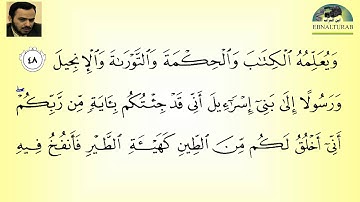 EBNALTURAB
وَيُعَلِّمُهُ ٱلْكِتَـٰبَ وَٱلْحِكْمَةَ وَٱلتَّوْرَىٰةَ وَٱلْإِنجِيلَ ٤٨
وَرَسُولًا إِلَىٰ بَنِىٓ إِسْرَٰٓءِيلَ أَنِّى قَدْ جِئْتُكُم بِـَٔايَةٍ مِّن رَّبِّكُمْ ۖ
أَنِّىٓ أَخْلُقُ لَكُم مِّنَ ٱلطِّينِ كَهَيْـَٔةِ ٱلطَّيْرِ فَأَنفُخُ فِيهِ